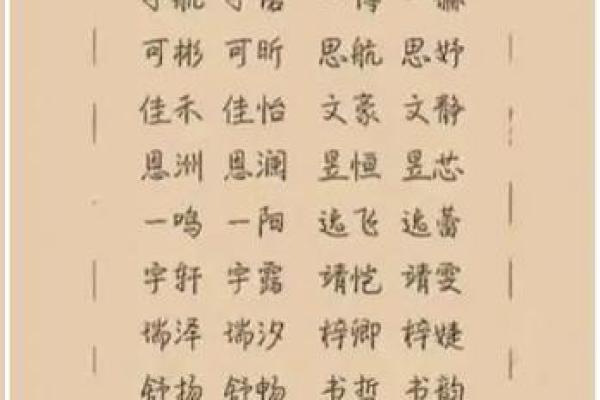 可彬 可昕 思航 思妤
佳禾 佳怡 文豪 文静
恩洲 恩澜 昱恒 昱芯
一鸣 一阳 逸飞 逸蕾
宇轩 宇露 靖恺 靖雯
瑞泽 瑞汐 梓卿 梓婕
舒扬 舒畅 书哲 书韵